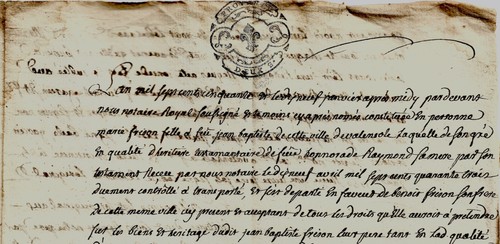 L'an mil sept cents cinquante et le dix neuf janvier apres midy par devant
nous notaire Royal soussigné et temoins cy apres només constituée en personne
marie frison fille a feu jean baptiste de cette ville de valensole laquelle de son gré
en qualité d'heritiere testamentaire de feüe honnorade Raymond sa mere par son
testament Receu par nous notaire le dix neuf avril mil sept cents quarante trois
duement controllé a transporté et s'est departie en faveur de benoit frison son frere
de cette meme ville icy present et acceptant de tous les droits qu'elle auroit a pretendre
sur les biens et heritage dudit jean baptiste frison leur pere tant en lad qualité